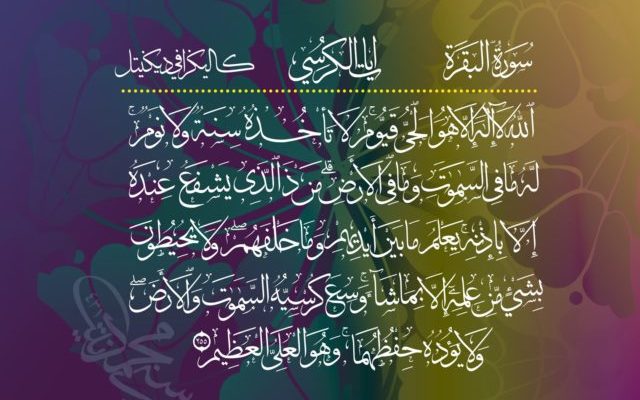 سُورَةُ البَقَرَة ايات الكرسي كاليكرافي ديكيتل
اللهُ لَا إِلَهَ إِلَّا هُوَ الْحَيُّ قَيُّومُ ۚ لَا تَأْخُذُهُ سِنَةٌ وَلَا نَوْمٌ ۚ
لَهُ مَا فِي السَّمَوَتِ وَمَا فِي الْأَرْضِ ۗ مَن ذَ الَّذِي يَشْفَعُ عِندَهُ
إِلَّا بِإِذْنِهِ ۚ يَعْلَمُ مَا بَيْنَ أَيْدِيهِمْ وَمَا خَلْفَهُمْ ۖ وَلَا يُحِيطُونَ
بِشَيْءٍ مِّنْ عِلْمِهِ إِلَّا بِمَا شَاءَ ۚ وَسِعَ كُرْسِيُّهُ السَّمَوَتِ وَالْأَرْضَ ۖ
وَلَا يَؤُدُهُ حِفْظُهُمَا ۚ وَهُوَ الْعَلِيُّ الْعَظِيمُ ٢٥٥